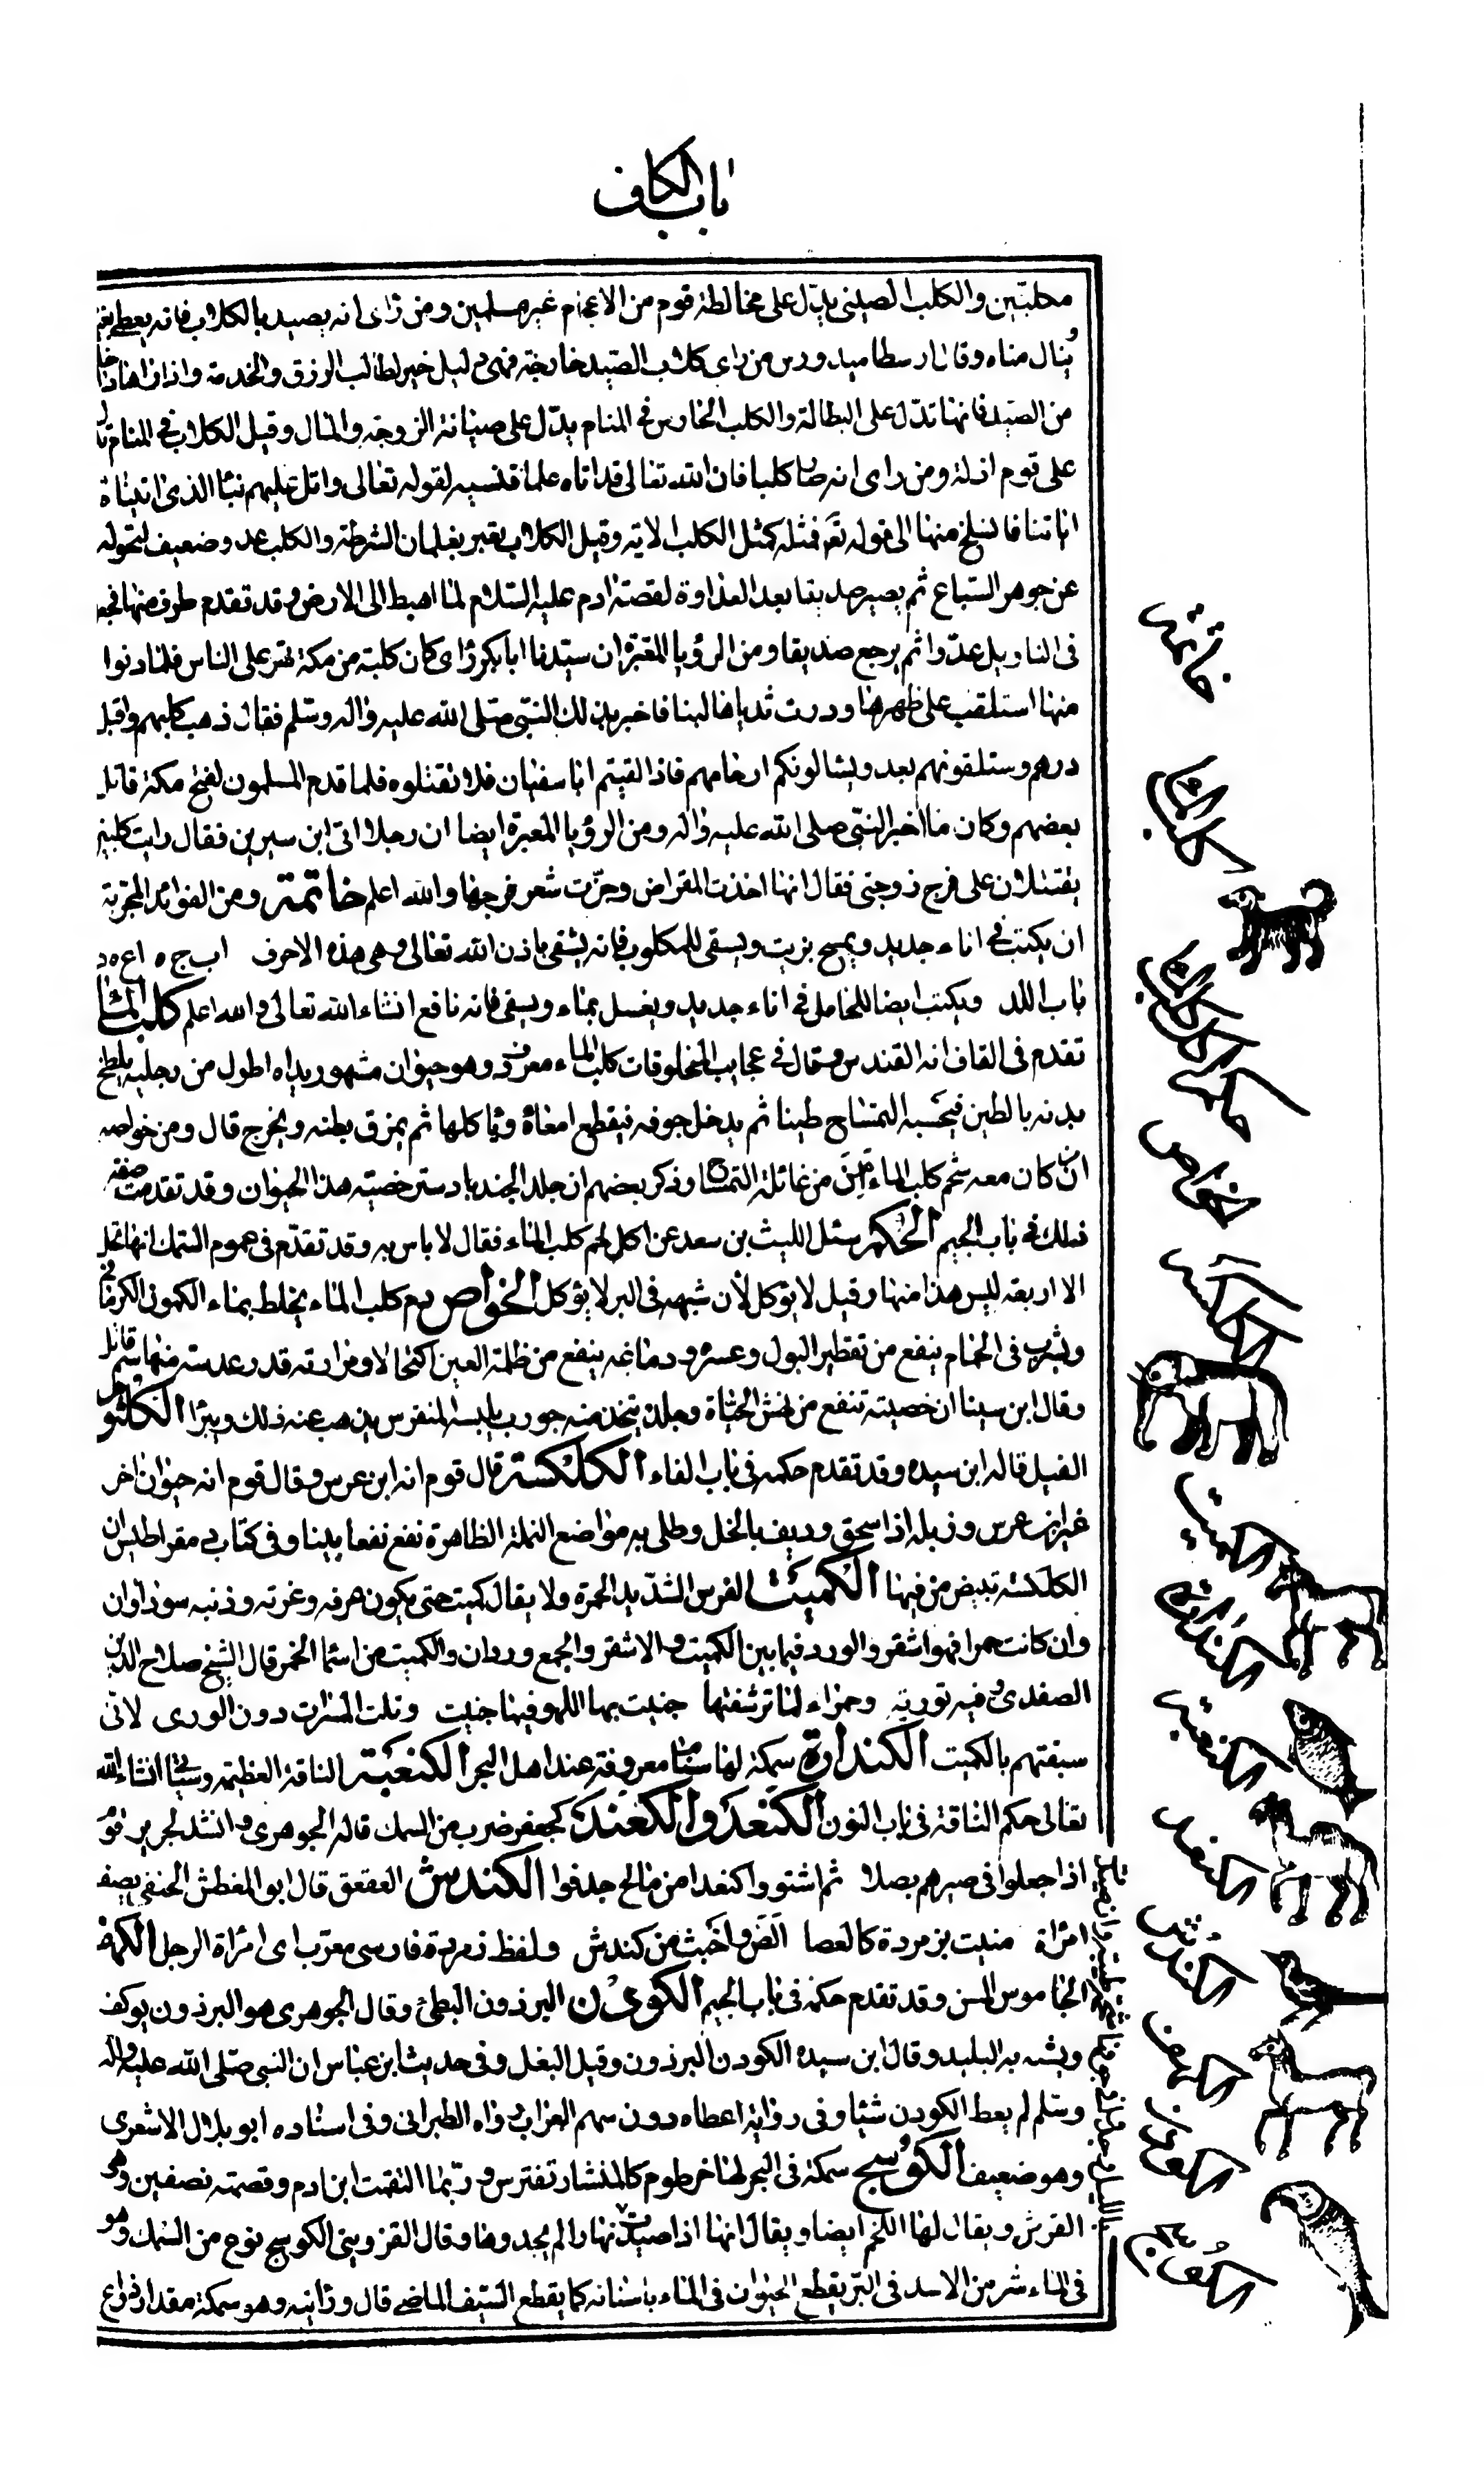 باب الكاف
محلبتين والكلب الصيني يدل على مخالطة قوم من الاعجام غير مسلمين ومن راى انه يصيد بالكلاب فانه يعطى
ينال مناه وقال ارسطاميدورس من راى كلاب الصيد خارجة فهى دليل خير لطالب الرزق والخدمة واذا راها
من الصيد فانها تدل على البطالة والكلب الحارس فى المنام يدل على صيانة الزوجة والمال وقيل الكلاب فى المنام
على قوم اذلة ومن راى انه صار كلبا فان الله تعالى قد اتاه علما فنسيه لقوله تعالى واتل عليهم نبا الذى اتيناه
اياتنا فانسلخ منها الى قوله تعم فمثله كمثل الكلب الاية وقيل الكلاب تعبر بغلمان الشرطة والكلب عدو ضعيف لتحوله
عن جوهر السباع ثم يصير صديقا بعد العداوة لقصة ادم عليه السلام لما اهبط الى الارض وقد تقدم طرف منها
فى التاويل عدوا ثم يرجع صديقا ومن الرؤيا المعبرة ان سيدنا ابا بكر راى كان كلبة من مكة تهر على الناس فلما دنوا
منها استلقت على ظهرها ودرت ثدياها لبنا فاخبر بذلك النبى صلى الله عليه واله وسلم فقال ذهب كلبهم واقبل
درهم وستلقونهم بعد ويسالونكم ارحامهم فاذا لقيتم ابا سفيان فلا تقتلوه فلما قدم المسلمون لفتح مكة قاتل
بعضهم وكان ما اخبر النبى صلى الله عليه واله ومن الرؤيا المعبرة ايضا ان رجلا اتى ابن سيرين فقال رايت كلبين
يقتتلان على فرج زوجتى فقال انها اخذت المقراض وجزت شعر فرجها والله اعلم خاتمة ومن الفوائد المجربة
ان يكتب فى اناء جديد ويمسح بزيت ويسقى للمكلوب فانه يشفى باذن الله تعالى وهى هذه الاحرف
باب اللد ويكتب ايضا للحامل فى اناء جديد ويغسل بماء ويسقى فانه نافع انشاء الله تعالى والله اعلم كلب الماء
تقدم فى القاف انه القندس وقال فى عجايب المخلوقات كلب الماء معروف وهو حيوان مشهور يداه اطول من رجليه يلطخ
بدنه بالطين فيحسبه التمساح طينا ثم يدخل جوفه فيقطع امعاه وياكلها ثم يمزق بطنه ويخرج قال ومن خواصه
ان من كان معه شحم كلب الماء امن من غائلة التمساح وذكر بعضهم ان جلد الجندبادستر خصيته هذا الحيوان وقد تقدمت صفة
ذلك فى باب الجيم الحكم سئل الليث بن سعد عن اكل لحم كلب الماء فقال لا باس به وقد تقدم فى عموم السمك انها تحل
الا اربعة ليس هذا منها وقيل لا يؤكل لان شبهه فى البر لا يؤكل الخواص دم كلب الماء يخلط بماء الكمون الكرمانى
ويشرب فى الحمام ينفع من تقطير البول وعسره ودماغه ينفع من ظلمة العين اكتحالا ومرارته قدر عدسة منها سم قاتل
وقال ابن سينا ان خصيته تنفع من نهش الحيات وجلده يتخذ منه جورب يلبسه المنقرس يذهب عنه ذلك ويبرا الكلثوم
الفيل قاله ابن سيده وقد تقدم حكمه فى باب الفاء الكلكسة قال قوم انه ابن عرس وقال قوم انه حيوان اخر
غير ابن عرس وزبله اذا سحق وديف بالخل وطلى به مواضع النملة الظاهرة نفع نفعا بينا وفى كتاب ديمقراطيس ان
الكلكسة تبيض من فيها الكميت الفرس الشديد الحمرة ولا يقال كميت حتى يكون عرفه وغرته وذنبه سوداوان
وان كانت حمرا فهو اشقر والورد فيما بين الكميت والاشقر والجمع وردان والكميت من اسما الخمر قال الشيخ صلاح الدين
الصفدى وفيه تورية وحمراء لما ترشفتها جنيت بها اللهو فيما جنيت ونلت المسرات دون الورى لانى
سبقتهم بالكميت الكندارة سمكة لها سنام معروفة عند اهل البحر الكنعبة الناقة العظيمة وسياتى انشاء الله
تعالى حكم الناقة فى باب النون الكنعد والكعند كجعفر ضرب من السمك قاله الجوهرى وانشد لجرير
اذا جعلوا فى صيرهم بصلا ثم اشتووا كنعدا من مالح جدفوا الكندش العقعق قال ابو الغطش الحنفى يصف
امراة منيت بزمردة كالعصا الص واخبث من كندش ولفظ زمردة فارسى معرب اى امراة الرجل الكهف
الجاموس المسن وقد تقدم حكمه فى باب الجيم الكودن البرذون البطئ وقال الجوهرى هو البرذون يوكف
ويشبه به البليد وقال ابن سيده الكودن البرذون وقيل البغل وفى حديث ابن عباس ان النبى صلى الله عليه واله
وسلم لم يعط الكودن شيئا وفى رواية اعطاه دون سهم العراب رواه الطبرانى وفى اسناده ابو بلال الاشعرى
وهو ضعيف الكوسج سمكة فى البحر لها خرطوم كالمنشار تفترس وربما التقمت ابن ادم وقصمته نصفين وهى
القرش ويقال لها اللخم ايضا ويقال انها اذا صيدت نهارا لم يجدوها وقال القزوينى الكوسج نوع من السمك وهو
فى الماء شر من الاسد فى البر يقطع الحيوان فى الماء باسنانه كما يقطع السيف الماضى قال ورايته وهو سمكة مقدار ذراع
خاتمة
كلب الماء
حكم
خواص
الكميت
الكندارة
الكنعبة
الكنعد
الكندش
الكهف
الكودن
الكوسج